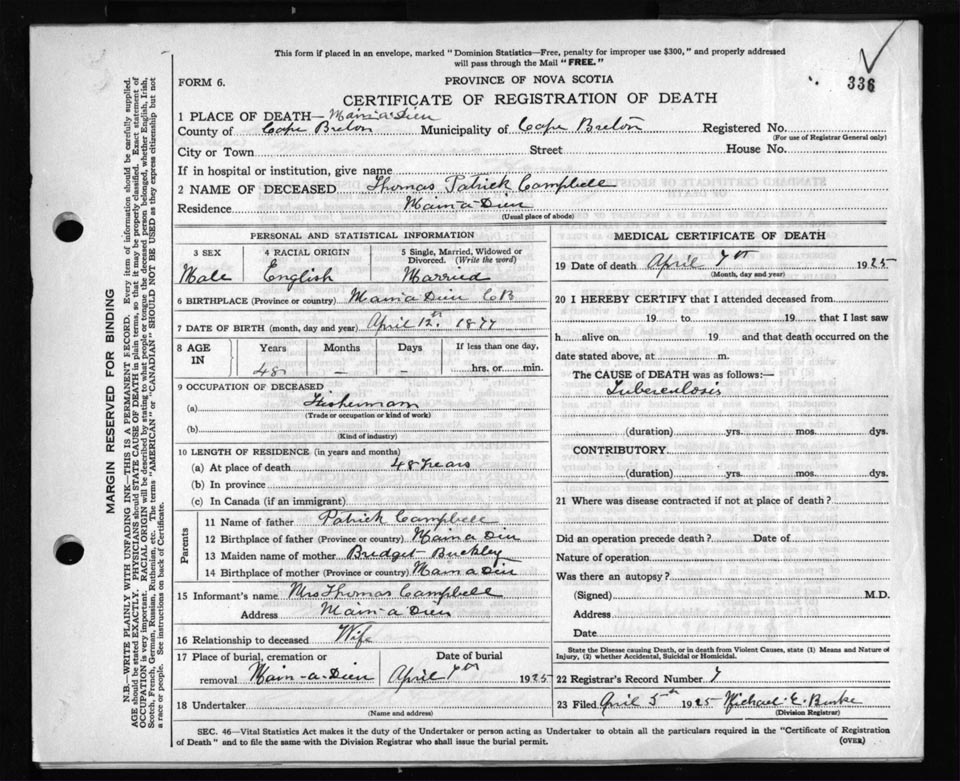 This form if placed in an envelope, marked "Dominion Statistics—Free, penalty for improper use $300," and properly addressed
will pass through the Mail "FREE."
FORM 6.
PROVINCE OF NOVA SCOTIA
336
CERTIFICATE OF REGISTRATION OF DEATH
1 PLACE OF DEATH— Main-a-Dieu
County of Cape Breton Municipality of Cape Breton Registered No.
(For use of Registrar General only)
City or Town Street House No.
If in hospital or institution, give name
2 NAME OF DECEASED Thomas Patrick Campbell
Residence Main-a-Dieu
(Usual place of abode)
PERSONAL AND STATISTICAL INFORMATION
3 SEX 4 RACIAL ORIGIN 5 Single, Married, Widowed or
Divorced. (Write the word)
Male English Married
6 BIRTHPLACE (Province or country) Main a Dieu C B
7 DATE OF BIRTH (month, day and year) April 12th 1877
8 AGE IN Years Months Days If less than one day,
48 — — hrs. or min.
9 OCCUPATION OF DECEASED
(a) Fisherman
(Trade or occupation or kind of work)
(b)
(Kind of industry)
10 LENGTH OF RESIDENCE (in years and months)
(a) At place of death 48 Years
(b) In province
(c) In Canada (if an immigrant)
Parents
11 Name of father Patrick Campbell
12 Birthplace of father (Province or country) Main a Dieu
13 Maiden name of mother Bridget Buckley
14 Birthplace of mother (Province or country) Main a Dieu
15 Informant's name Mrs Thomas Campbell
Address Main-a Dieu
16 Relationship to deceased Wife
17 Place of burial, cremation or Date of burial
removal Main-a-Dieu April 7th 1925
18 Undertaker
(Name and address)
MEDICAL CERTIFICATE OF DEATH
19 Date of death April 7th 1925
(Month, day and year)
20 I HEREBY CERTIFY that I attended deceased from
19 to 19 that I last saw
h alive on 19 and that death occurred on the
date stated above, at m.
The CAUSE of DEATH was as follows:—
Tuberculosis
(duration) yrs. mos. dys.
CONTRIBUTORY
(duration) yrs. mos. dys.
21 Where was disease contracted if not at place of death?
Did an operation precede death? Date of
Nature of operation
Was there an autopsy?
(Signed) M.D.
Address
Date
State the Disease causing Death, or in death from Violent Causes, state (1) Means and Nature of
Injury, (2) whether Accidental, Suicidal or Homicidal.
22 Registrar's Record Number 7
23 Filed April 5th 1925 Michael E. Burke
(Division Registrar)
SEC. 46—Vital Statistics Act makes it the duty of the Undertaker or person acting as Undertaker to obtain all the particulars required in the "Certificate of Registration
of Death" and to file the same with the Division Registrar who shall issue the burial permit.
(OVER)
MARGIN RESERVED FOR BINDING
N.B.—WRITE PLAINLY WITH UNFADING INK—THIS IS A PERMANENT RECORD. Every item of information should be carefully supplied.
AGE should be stated EXACTLY. PHYSICIANS should STATE CAUSE OF DEATH in plain terms, so that it may be properly classified. Exact statement of
OCCUPATION is very important. RACIAL ORIGIN will be described by stating to what people or tongue the deceased person belonged, whether English, Irish,
Scotch, French, German, Russian, Ruthenian, etc. The terms "AMERICAN" or "CANADIAN" SHOULD NOT BE USED as they express citizenship but not
a race or people. See instructions on back of Certificate.